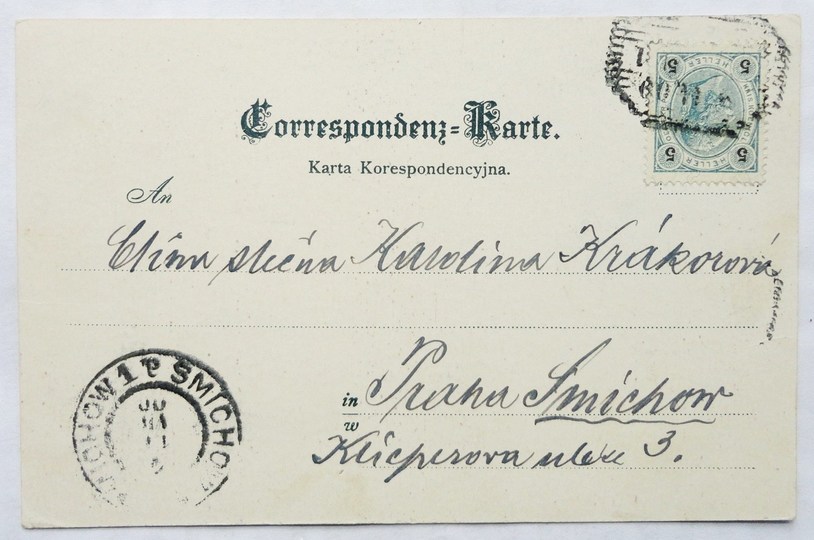 5 HELLER 5
5 HELLER 5
Correspondenz=Karte.
Karta Korespondencyjna.
An
Ctěná slečna Karolina Krákorová
in Praha Smíchow
w
Klicperova ulice 3.
SMICHOW 1 P SMICHOW